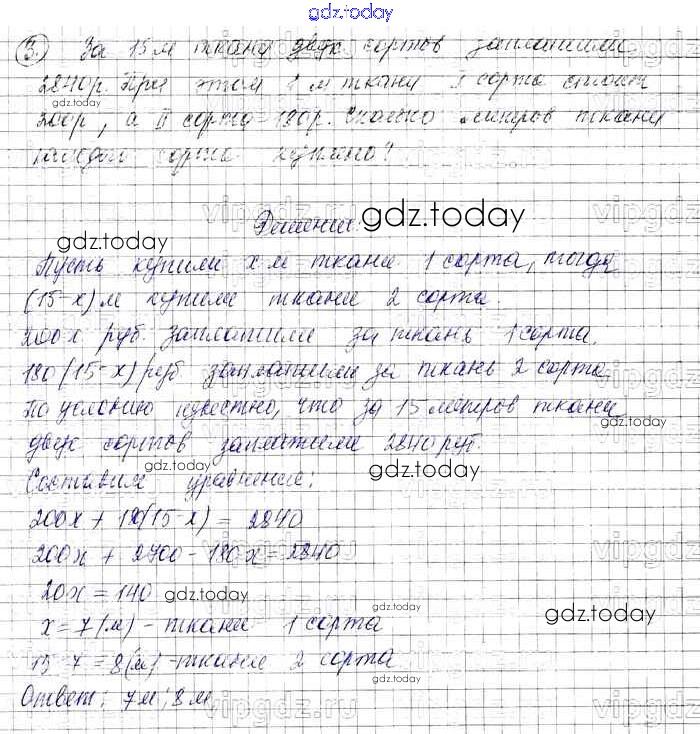 gdz.today
3. За 15 м ткани двух сортов заплатили
2840 р. При этом 1 м ткани I сорта стоит
gdz.today
200 р, а II сорта 180 р. Сколько метров ткани
каждого сорта куплено?
gdz.today
Решение. gdz.today
Пусть купили x м ткани 1 сорта, тогда
(15-x) м купили ткани 2 сорта.
200x руб. заплатили за ткань 1 сорта.
180(15-x) руб заплатили за ткань 2 сорта
gdz.today gdz.today
По условию известно, что за 15 метров ткани
двух сортов заплатили 2840 руб.
gdz.today gdz.today
Составим уравнение:
200x + 180(15-x) = 2840
200x + 2700 - 180x = 2840
20x = 140 gdz.today
gdz.today gdz.today
x = 7 (м) - ткани 1 сорта
15-7 = 8 (м) - ткани 2 сорта
gdz.today
Ответ: 7 м; 8 м
vipgdz.ru